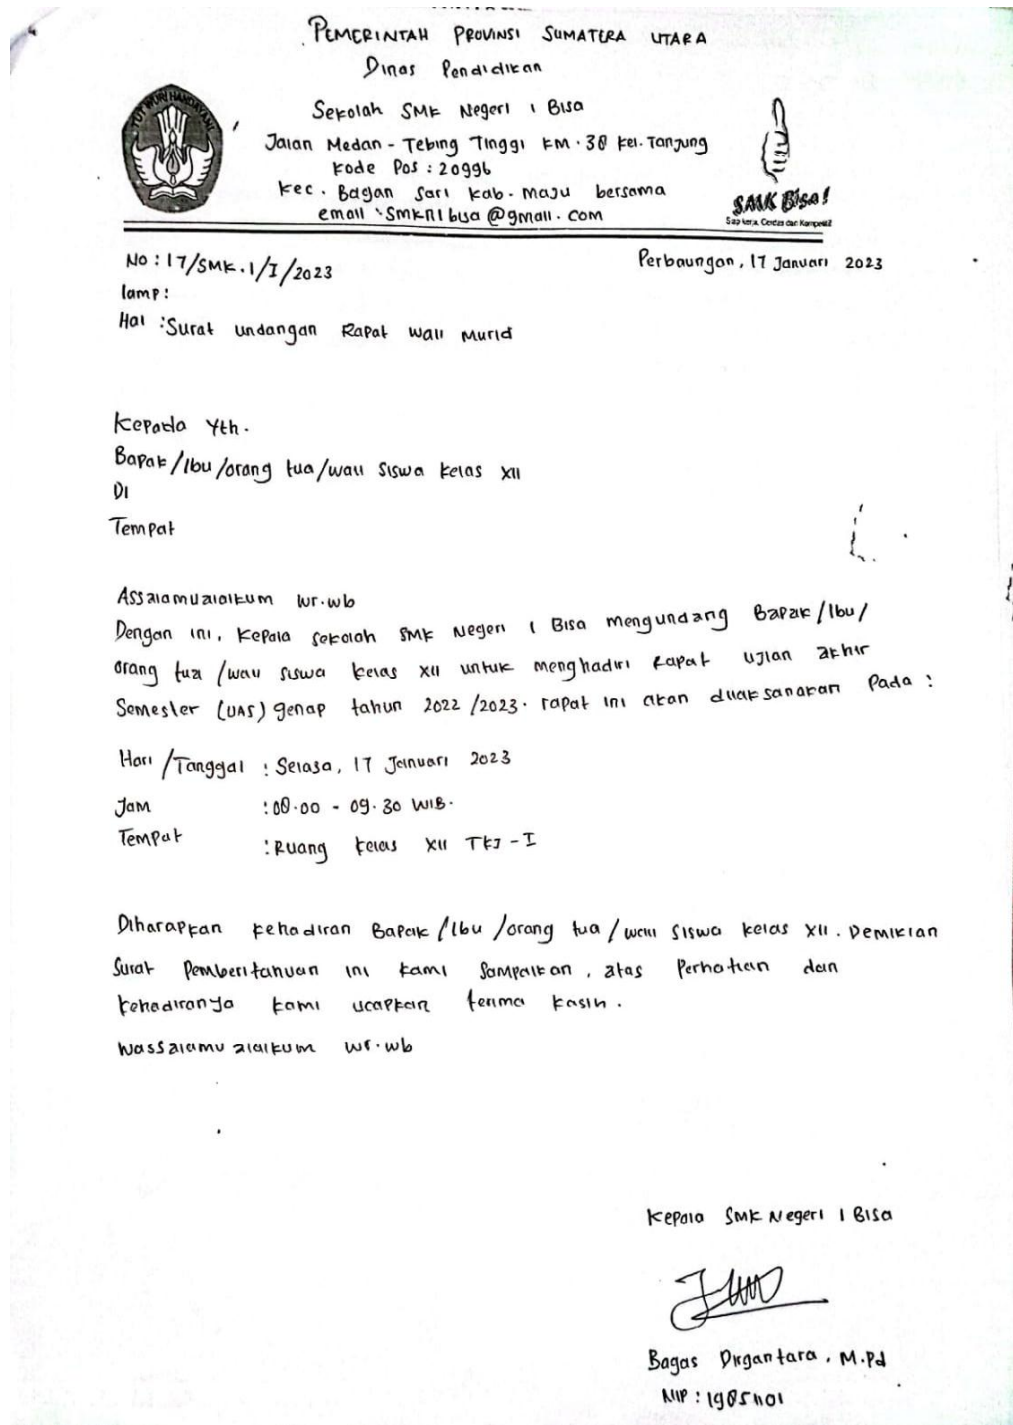 PEMERINTAH PROVINSI SUMATERA UTARA
Dinas Pendidikan
Sekolah SMK Negeri 1 Bisa
Jalan Medan - Tebing Tinggi KM. 38 Kel. Tanjung
Kode Pos : 20996
Kec. Bagan Sari Kab. Maju bersama
email : Smkn1bisa@gmail.com
TUT WURI HANDAYANI
SMK Bisa!
Siap kerja, Cerdas dan Kompetitif
No : 17/SMK.1/I/2023
Perbaungan, 17 Januari 2023
lamp :
Hal : Surat undangan Rapat wali Murid
Kepada Yth.
Bapak/Ibu/orang tua/wali siswa kelas XII
Di
Tempat
Assalamualaikum wr.wb
Dengan ini, Kepala sekolah SMK Negeri 1 Bisa mengundang Bapak/Ibu/
orang tua/wali siswa kelas XII untuk menghadiri Rapat ujian akhir
Semester (UAS) genap tahun 2022/2023. rapat ini akan dilaksanakan Pada :
Hari/Tanggal : Selasa, 17 Januari 2023
Jam : 08.00 - 09.30 WIB.
Tempat : Ruang kelas XII TKJ - I
Diharapkan kehadiran Bapak/Ibu/orang tua/wali siswa kelas XII. Demikian
Surat Pemberitahuan ini kami sampaikan, atas Perhatian dan
kehadiranya kami ucapkan terima kasih.
Wassalamu alaikum wr.wb
Kepala SMK Negeri 1 Bisa
Bagas Dirgantara, M.Pd
NIP : 19851101